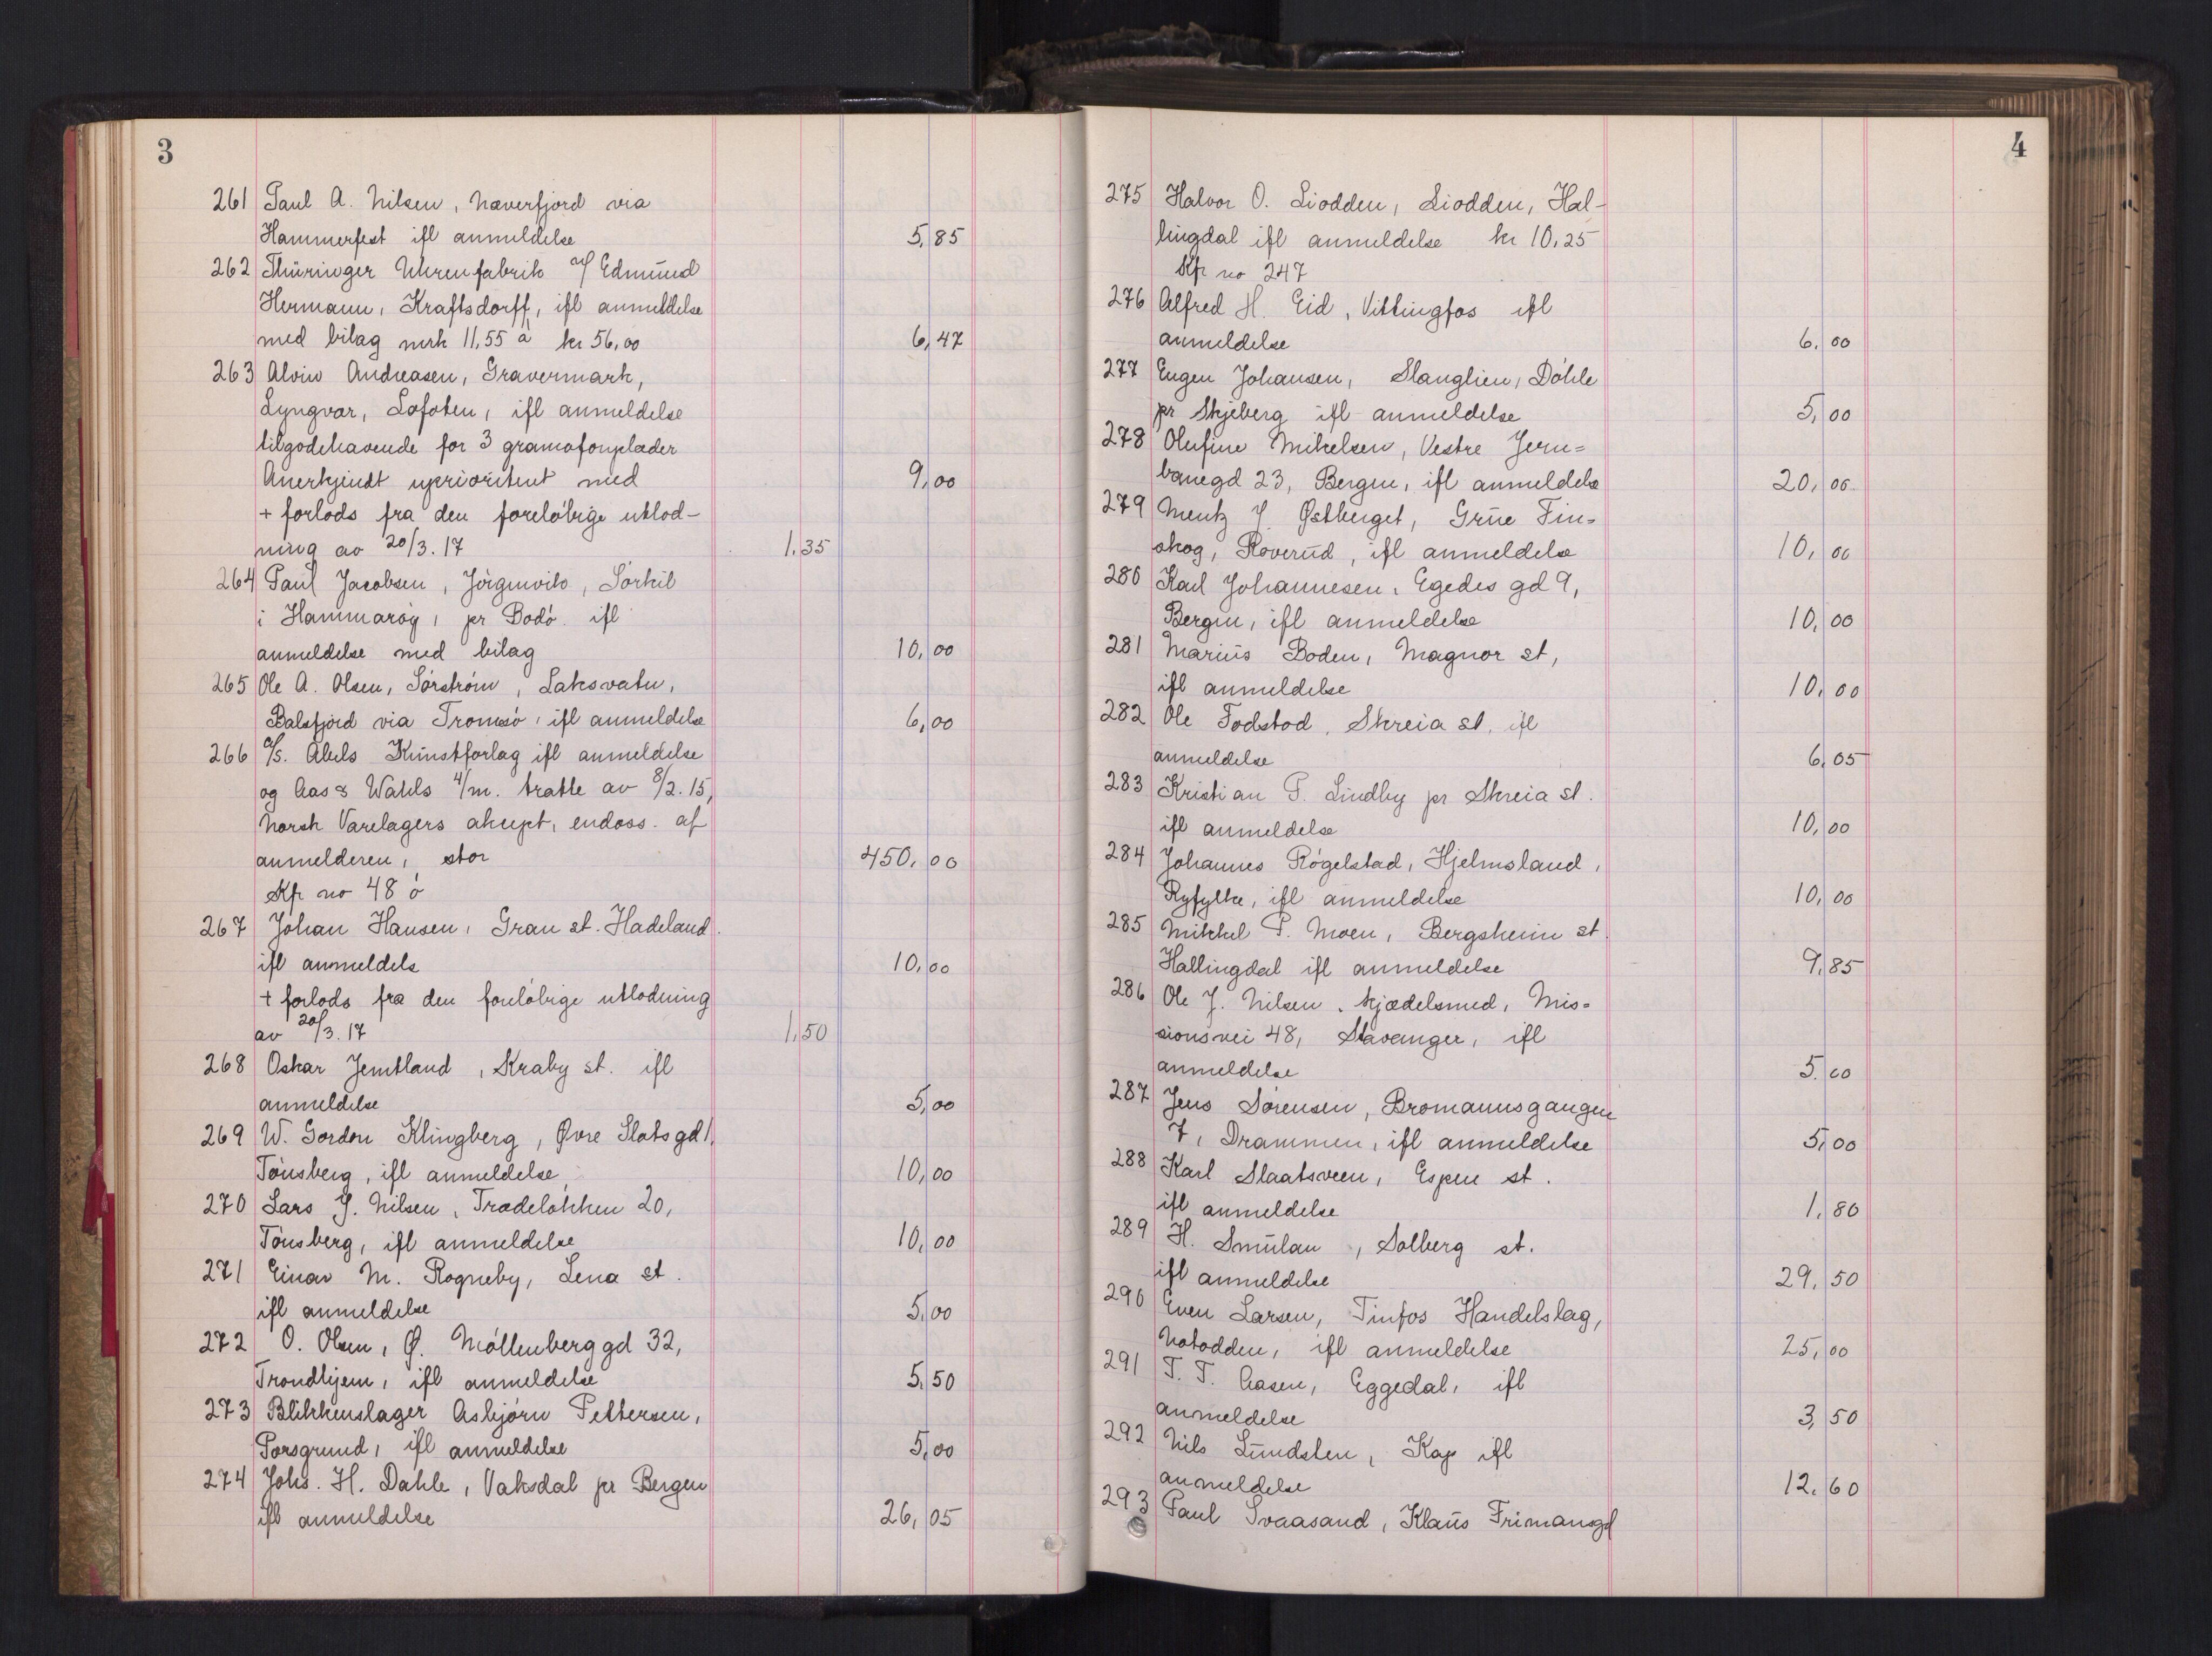 3
261 Paul A. Nilsen, Næverfjord via
Hammerfest ifl anmeldelse 5,85
262 Thüringer Uhrenfabrik v/ Edmund
Hermann, Kraftsdorff, ifl anmeldelse
med bilag mrk 11,55 à kr 56,00 6,47
263 Alvin Andreasen, Gravermark,
Lyngvær, Lofoten, ifl anmeldelse
tilgodehavende for 3 gramofonplader
Anerkjendt uprioritert med 9,00
+ forlods fra den foreløbige utlod-
ning av 20/3.17 1,35
264 Paul Jacobsen, Jørgenvik, Sørkil
i Hammarøy, pr Bodø. ifl
anmeldelse med bilag 10,00
265 Ole A. Olsen, Sørstrøm, Laksvatn,
Balsfjord via Tromsø, ifl anmeldelse 6,00
266 A/S. Abels Kunstforlag ifl anmeldelse
og Aas & Wahls 4/m. tratte av 8/2.15,
Norsk Varelagers aksept, endoss. af
anmelderen, stor 450,00
Kfr no 48 ó
267 Johan Hansen, Gran st. Hadeland.
ifl anmeldels 10,00
+ forlods fra den foreløbige utlodning
av 20/3.17 1,50
268 Oskar Jemtland, Kraby st. ifl
anmeldelse 5,00
269 W. Gordon Klingberg, Øvre Slotsgd 1,
Tønsberg, ifl anmeldelse, 10,00
270 Lars J. Nilsen, Trædeløkken 20,
Tønsberg, ifl anmeldelse 10,00
271 Einar M. Rogneby, Lena st.
ifl anmeldelse 5,00
272 O. Olsen, Ø. Møllenberggd 32,
Trondhjem, ifl anmeldelse 5,50
273 Blikkenslager Asbjørn Pettersen,
Porsgrund, ifl anmeldelse 5,00
274 Johs. H. Dahle, Vaksdal pr Bergen
ifl anmeldelse 26,05
4
275 Halvor O. Liodden, Liodden, Hal-
lingdal ifl anmeldelse kr 10,25
Kfr no 247
276 Alfred H. Eid, Vittingfos ifl
anmeldelse 6,00
277 Eugen Johansen, Slanglien, Døhle
pr Skjeberg ifl anmeldelse 5,00
278 Olufine Mikelsen, Vestre Jern=
banegd 23, Bergen, ifl anmeldelse 20,00
279 Mentz J. Østberget, Grue Fin=
skog, Roverud, ifl anmeldelse 10,00
280 Karl Johannesen, Egedes gd 9,
Bergen, ifl anmeldelse 10,00
281 Marius Boden, Magnor st,
ifl anmeldelse 10,00
282 Ole Fodstad, Skreia st. ifl
anmeldelse 6,05
283 Kristian P. Lindby pr Skreia st.
ifl anmeldelse 10,00
284 Johannes Røgelstad, Hjelmsland,
Ryfylke, ifl anmeldelse 10,00
285 Mikkel P. Moen, Bergsheim st.
Hallingdal ifl anmeldelse 9,85
286 Ole J. Nilsen, kjædelsmed, Mis=
sionsvei 48, Stavanger, ifl
anmeldelse 5,00
287 Jens Sørensen, Bromannsgangen
7, Drammen, ifl anmeldelse 5,00
288 Karl Slaatsveen, Espen st.
ifl anmeldelse 1,80
289 H. Smulan, Solberg st.
ifl anmeldelse 29,50
290 Even Larsen, Tinfos Handelslag,
Notodden, ifl anmeldelse 25,00
291 T. T. Aasen, Eggedal, ifl
anmeldelse 3,50
292 Nils Lundsten, Kap ifl
anmeldelse 12,60
293 Paul Svaasand, Klaus Frimansgd